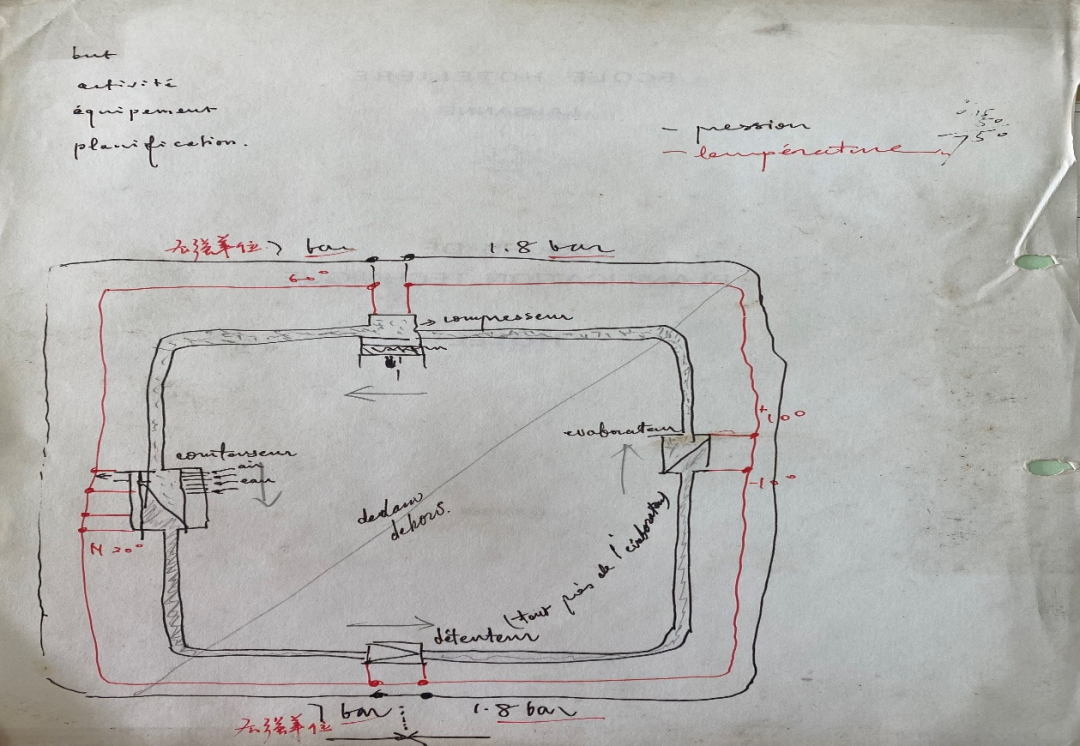 but
activité
équipement
planification.
- pression
- température
压强单位 7 bar
1.8 bar
60°
→ compresseur
+10°
evaborateur
-10°
air
eau
dedans
dehors.
N 20°
(tout près de l'évaborateur)
détenteur
7 bar
1.8 bar
压强单位